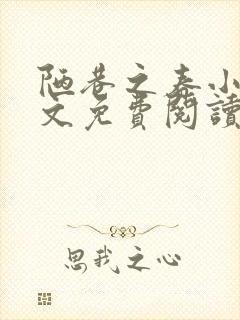 陋巷之春小
文免費閱讀
思我之心